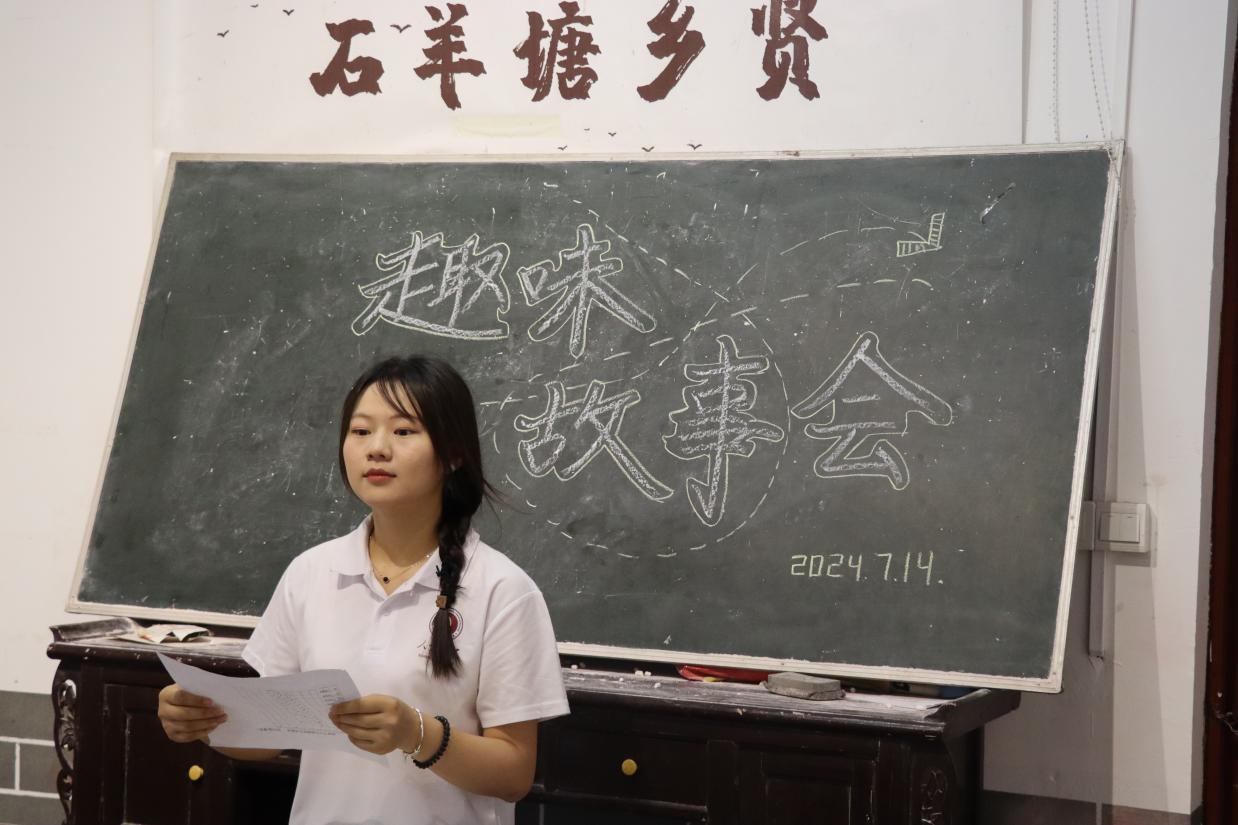 石羊塘乡贤
趣味
故事会
2024.7.14.